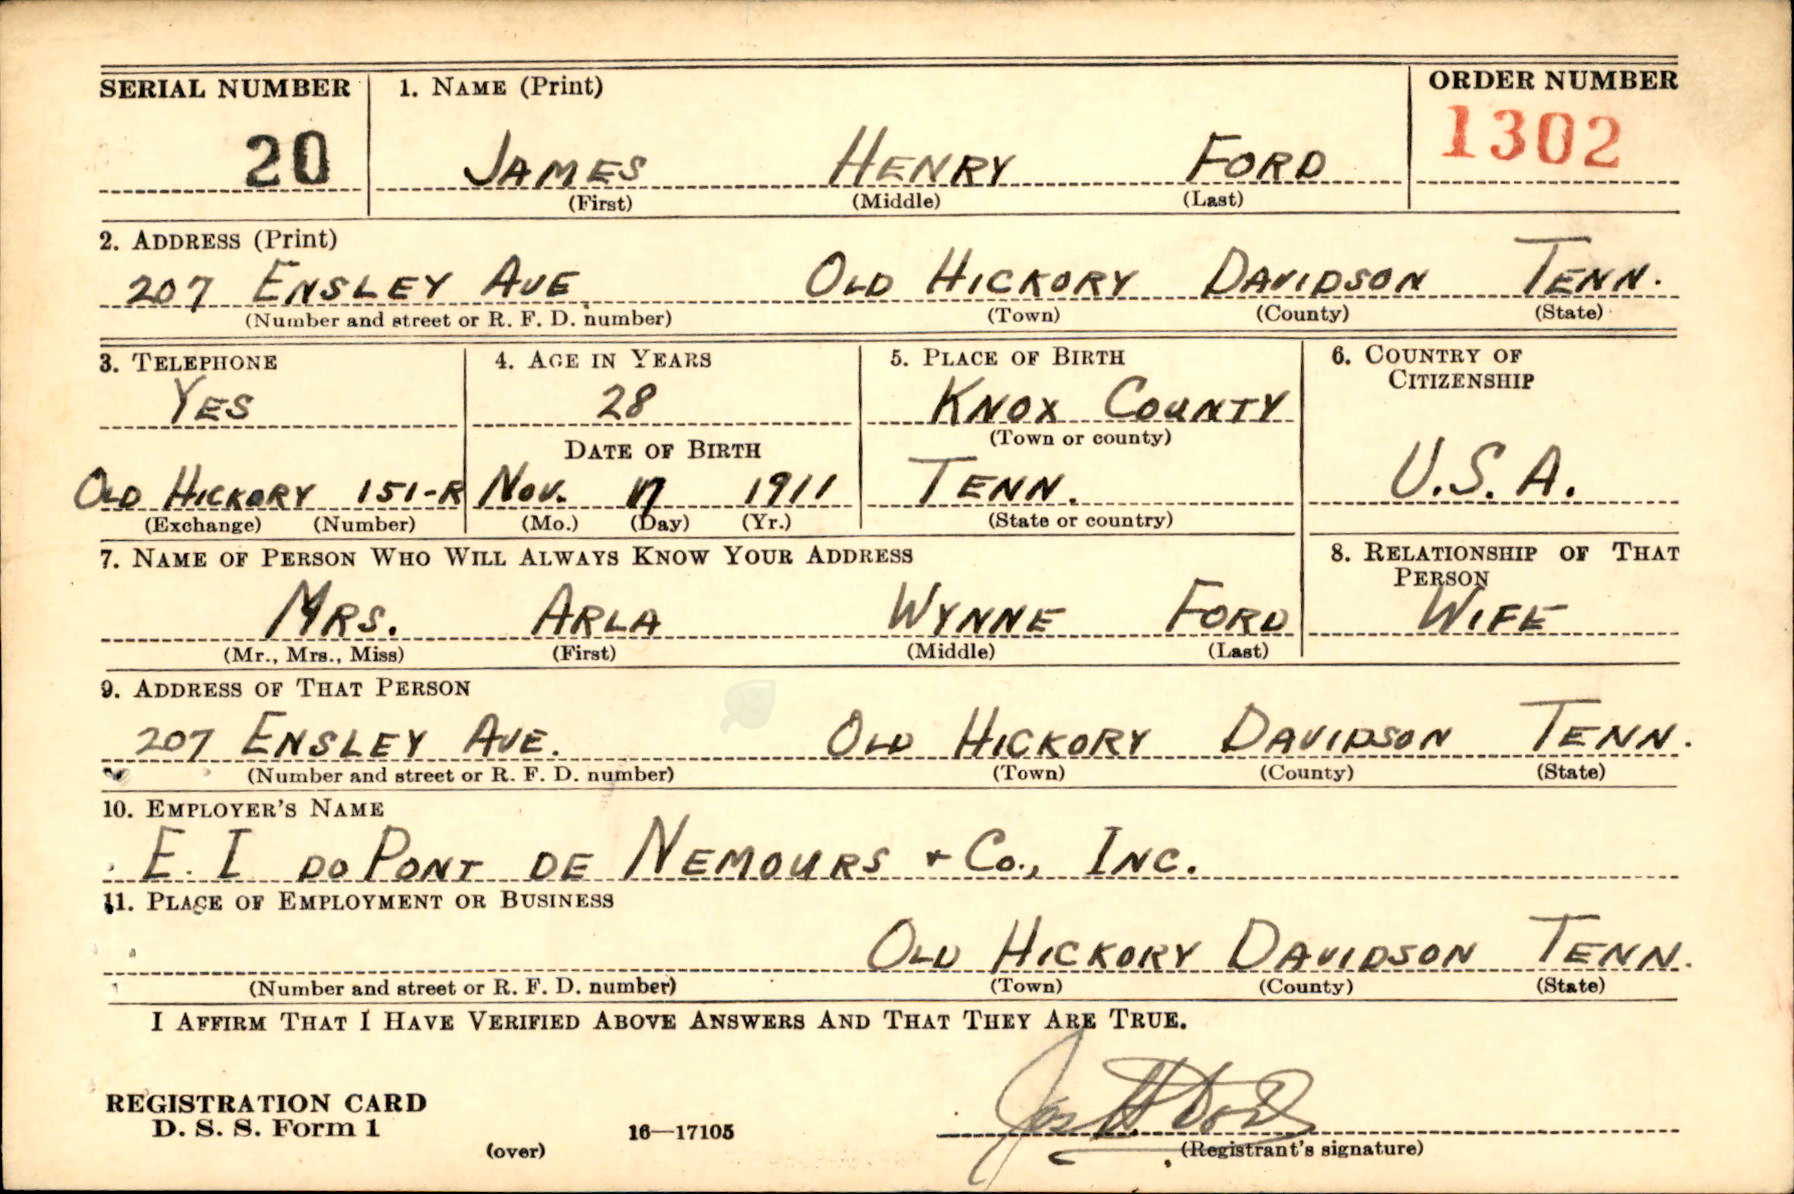 SERIAL NUMBER 1. NAME (Print) ORDER NUMBER
20 JAMES HENRY FORD 1302
(First) (Middle) (Last)
2. ADDRESS (Print)
207 ENSLEY AVE. OLD HICKORY DAVIDSON TENN.
(Number and street or R. F. D. number) (Town) (County) (State)
3. TELEPHONE 4. AGE IN YEARS 5. PLACE OF BIRTH 6. COUNTRY OF CITIZENSHIP
YES 28 KNOX COUNTY
(Town or county)
DATE OF BIRTH
OLD HICKORY 151-R NOV. 17 1911 TENN. U.S.A.
(Exchange) (Number) (Mo.) (Day) (Yr.) (State or country)
7. NAME OF PERSON WHO WILL ALWAYS KNOW YOUR ADDRESS 8. RELATIONSHIP OF THAT PERSON
MRS. ARLA WYNNE FORD WIFE
(Mr., Mrs., Miss) (First) (Middle) (Last)
9. ADDRESS OF THAT PERSON
207 ENSLEY AVE. OLD HICKORY DAVIDSON TENN.
(Number and street or R. F. D. number) (Town) (County) (State)
10. EMPLOYER'S NAME
E. I DO PONT DE NEMOURS + CO., INC.
11. PLACE OF EMPLOYMENT OR BUSINESS
OLD HICKORY DAVIDSON TENN.
(Number and street or R. F. D. number) (Town) (County) (State)
I AFFIRM THAT I HAVE VERIFIED ABOVE ANSWERS AND THAT THEY ARE TRUE.
REGISTRATION CARD
D. S. S. Form 1
(over) 16—17105 (Registrant's signature)